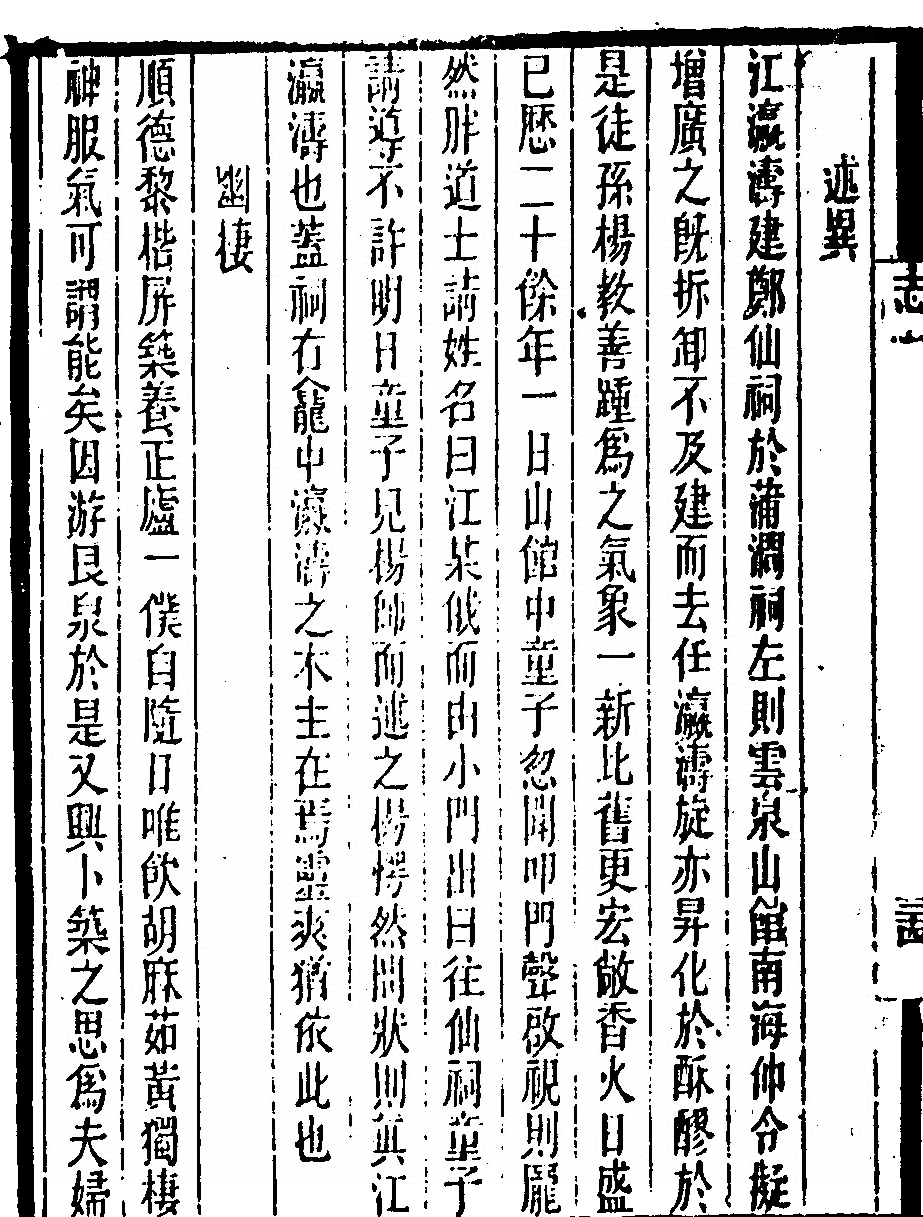 述異
江瀛濤建鄭仙祠於蒲澗祠左則雲泉山館南海仲令擬
增廣之旣拆卸不及建而去任瀛濤旋亦昇化於酥醪於
是徒孫楊教善踵爲之氣象一新比舊更宏敞香火日盛
已歷二十餘年一日山館中童子忽聞叩門聲啟視則龐
然胖道士請姓名曰江某俄而由小門出曰往仙祠童子
請導不許明日童子見楊師而述之楊愕然問狀則眞江
瀛濤也蓋祠右龕中瀛濤之木主在焉靈爽猶依此也
幽棲
順德黎楷屏築養正廬一僕自隨日唯飲胡麻茹黃獨棲
神服氣可謂能矣因游艮泉於是又興卜築之思爲夫婦
志